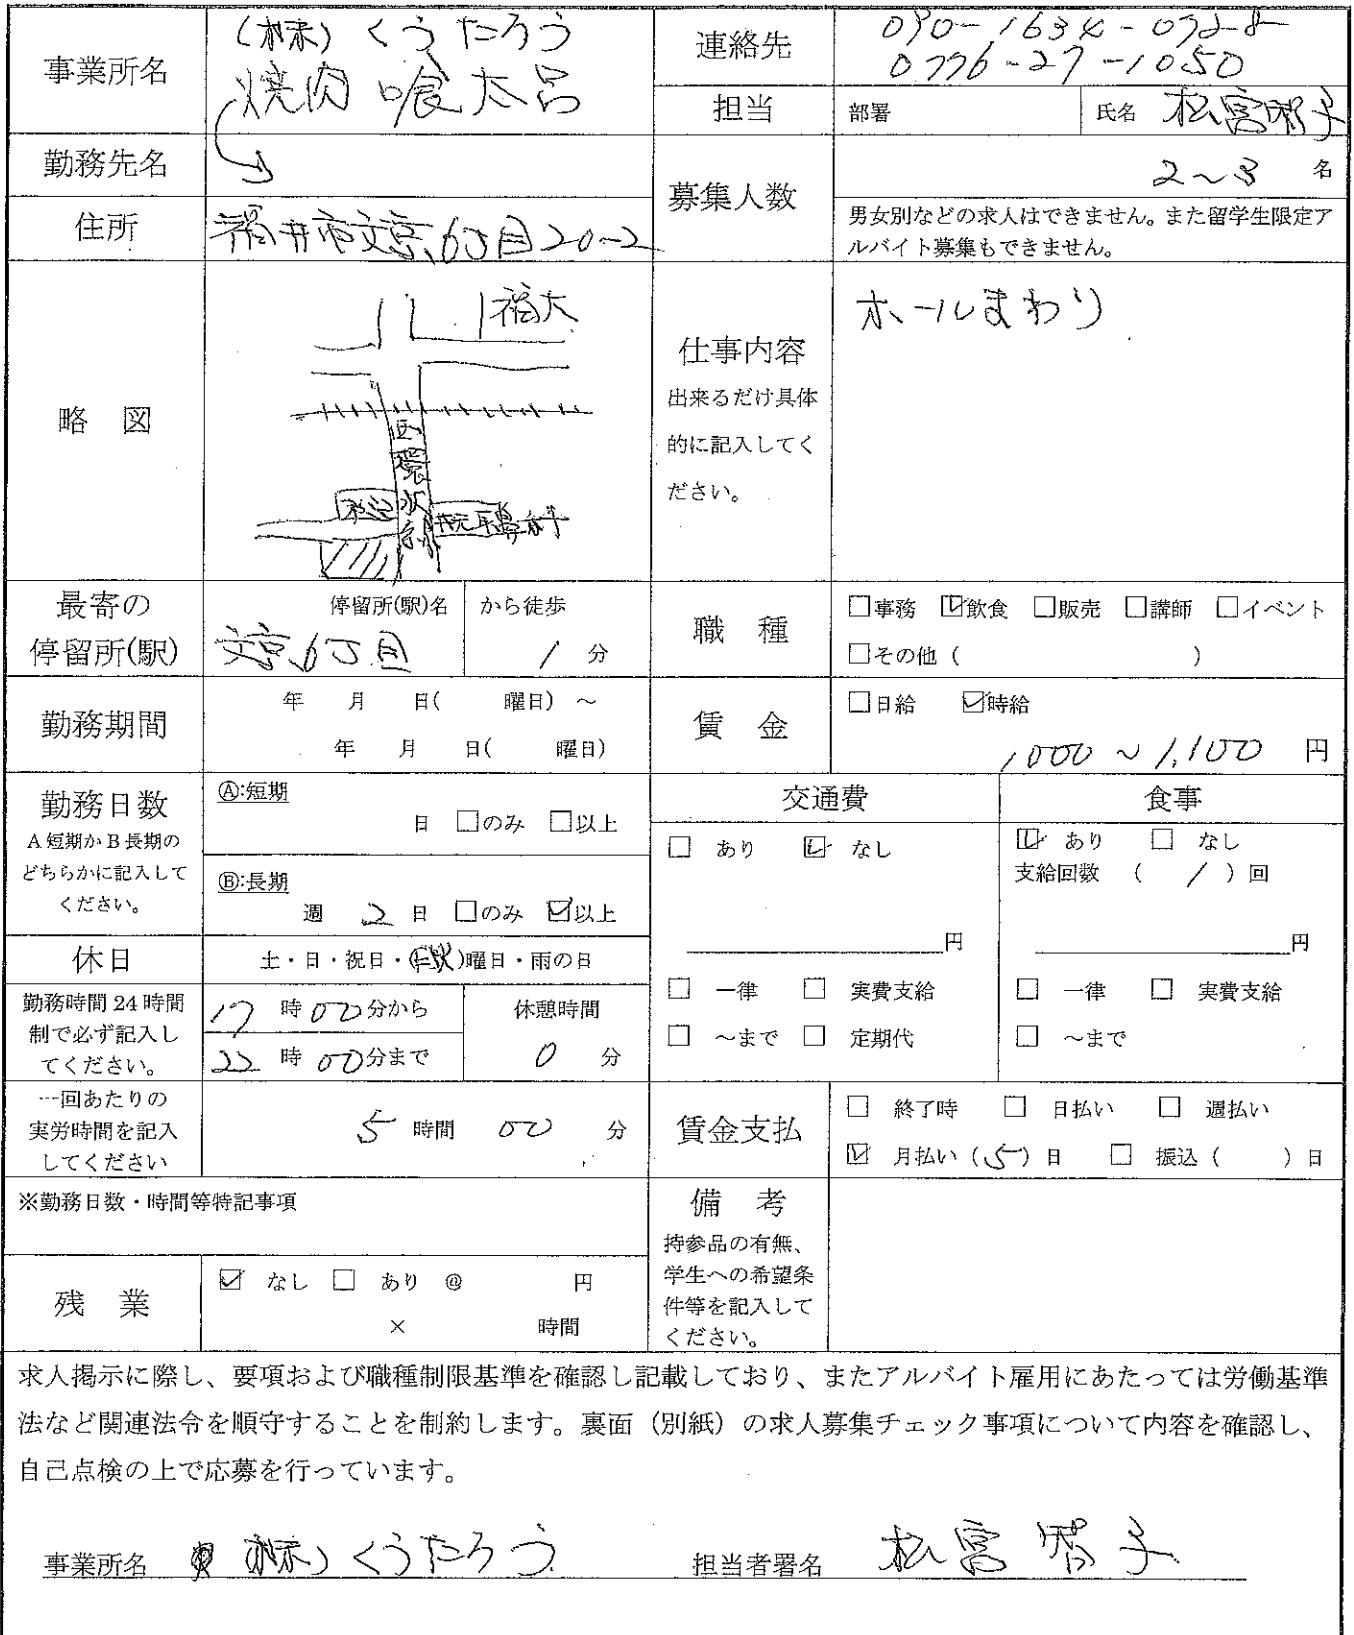 事業所名
(株) くうたろう
焼肉 喰太呂
連絡先
090-1634-0728
0776-27-1050
担当
部署
氏名 松宮智子
勤務先名
募集人数
2~3 名
男女別などの求人はできません。また留学生限定ア
ルバイト募集もできません。
住所
福井市文京6丁目20-2
略 図
福大
西環状線
松辺
耳鼻科
仕事内容
出来るだけ具体
的に記入してく
ださい。
ホールまわり
最寄の
停留所(駅)
停留所(駅)名
文京6丁目
から徒歩
1 分
職 種
□事務 ☑飲食 □販売 □講師 □イベント
□その他 ( )
勤務期間
年 月 日( 曜日) ~
年 月 日( 曜日)
賃 金
□日給 ☑時給
1000 ~ 1,100 円
勤務日数
A 短期か B 長期の
どちらかに記入して
ください。
Ⓐ:短期
日 □のみ □以上
Ⓑ:長期
週 2 日 □のみ ☑以上
交通費
□ あり ☑ なし
円
□ 一律 □ 実費支給
□ ~まで □ 定期代
食事
☑ あり □ なし
支給回数 ( 1 ) 回
円
□ 一律 □ 実費支給
□ ~まで
休日
土・日・祝日・( )曜日・雨の日
勤務時間 24 時間
制で必ず記入し
てください。
17 時 00 分から
22 時 00 分まで
休憩時間
0 分
一回あたりの
実労時間を記入
してください
5 時間 00 分
賃金支払
□ 終了時 □ 日払い □ 週払い
☑ 月払い (5) 日 □ 振込 ( ) 日
※勤務日数・時間等特記事項
備 考
持参品の有無、
学生への希望条
件等を記入して
ください。
残 業
☑ なし □ あり @ 円
× 時間
求人掲示に際し、要項および職種制限基準を確認し記載しており、またアルバイト雇用にあたっては労働基準
法など関連法令を順守することを制約します。裏面（別紙）の求人募集チェック事項について内容を確認し、
自己点検の上で応募を行っています。
事業所名 (株) くうたろう
担当者署名 松宮 智子